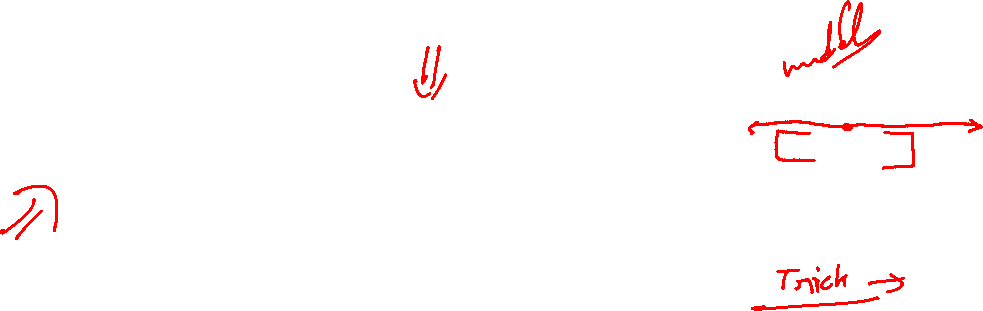 middle
Trick →